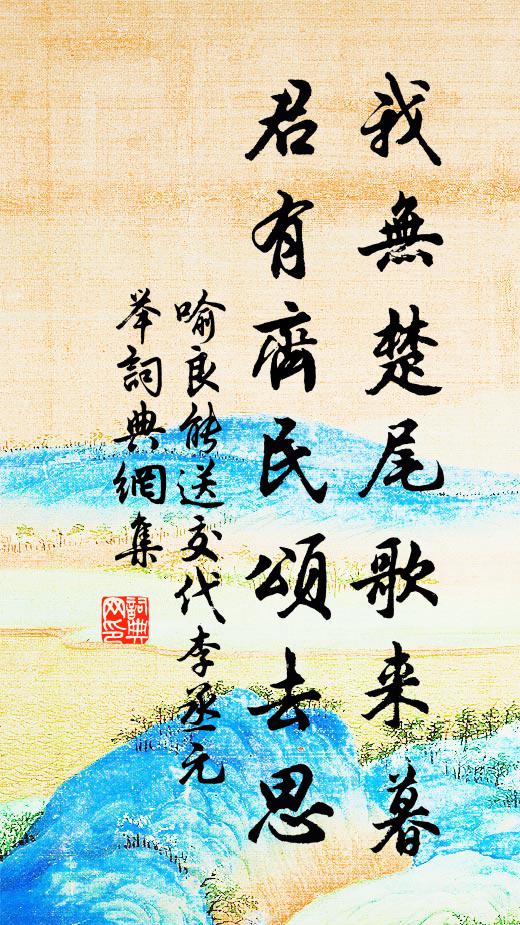 我無楚尾歌来暮
君有齊民頌去思
喻良能送交代李丞元
举詞典網集
詞典
网印